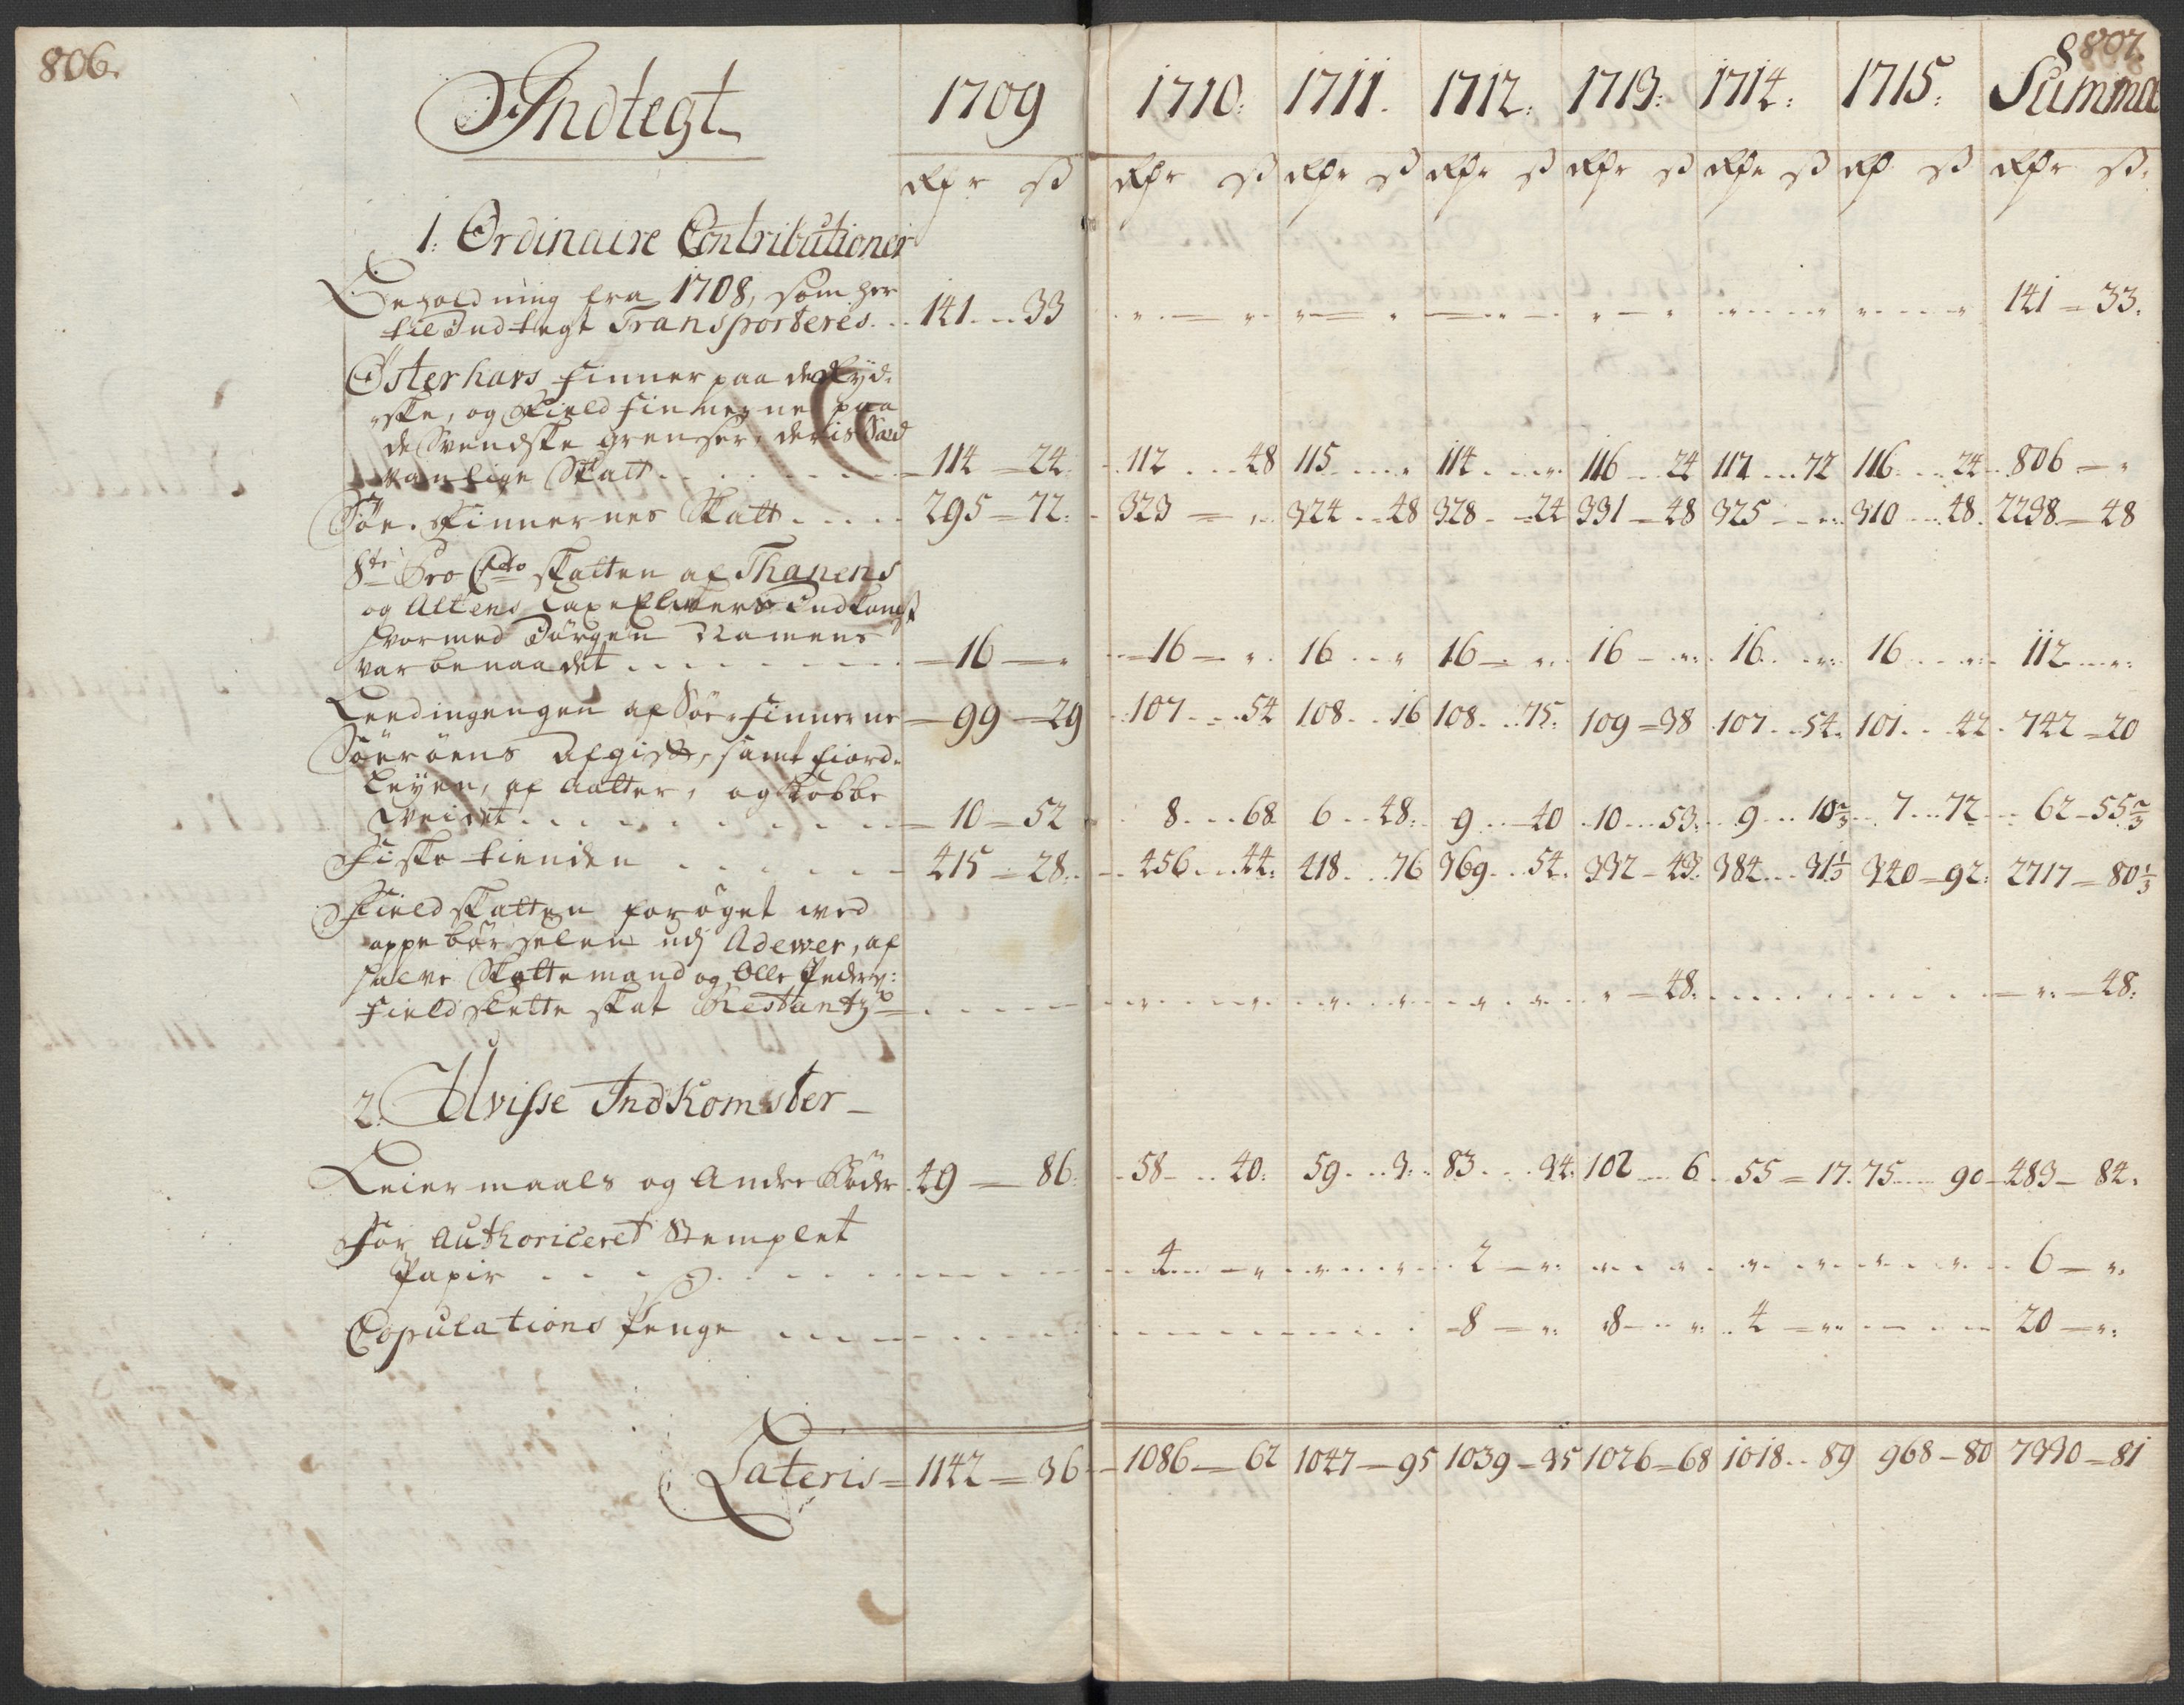 806.
807.
Indtegt
1709 1710: 1711. 1712: 1713: 1714: 1715: Summa
Rdr ß Rdr ß Rdr ß Rdr ß Rdr ß Rdr ß Rd ß Rdr ß
1: Ordinaire Contributioner
Beholdning fra 1708, som her
till Indtegt Transporteres. 141 33 141 = 33.
Østerhavs finner paa de Ryd-
ske, og Field finnerne paa
de Svendske grenser, deris Sæd
vanlige Skatt 114 = 24 112 48 115 " 114 " 116 24 117 72 116 24 806 "
Søe-finnernes Skatt 295 = 72 323 " 324 48 328 24 331 48 325 " 310 48 2238 = 48
8te Pro Cto skatten af Thanens
og Altens Laxe Elvers Indkomst
hvormed Jørgen
var benaadet 16 " 16 " 16 " 16 " 16 " 16 " 16 " 112 "
Leedingengen af Søe-finnerne 99 29 107 54 108 16 108 75 109 = 38 107 54 101 42 742 = 20
Søerøens Afgift, samt fiord-
leyen, af aatter, og Kobbe
Veidet 10 = 52 8 68 6 48 9 40 10 53 9 10 2/3 7 72 62 = 55 2/3
Fiske tienden 415 28 456 44 418 76 369 54 332 43 384 31 1/3 340 = 92 2717 = 80 1/3
Field skatten forøget med
oppebørselen udj Adewer, af
halve Skattemand og Olle Peders:
field slette skat Restantz " 48 " 48:
2. Uvisse Indkomster
Leiermaals og Andre Bøder 49 86 58 40: 59 3 83 34 102 6 55 = 17 75 90 483 84.
For Authoriceret Stemplet
Papir 4 " 2 " 6 "
Copulations Penge 8 " 8 " 4 " 20 "
Lateris = 1142 = 36 1086 62 1047 95 1039 35 1026 = 68 1018 89 968 80 7330 = 81